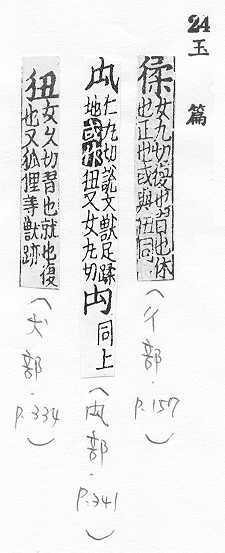 24 玉篇
𢔟 女九切復也習也休
也正也或與狃同
（彳部・P.157）
禸 仁九切說文獸足蹂
地 狃又女九切
禸 同上
（禸部・P.341）
狃 女久切習也就也復
也又狐狸等獸跡
（犬部・P.334）